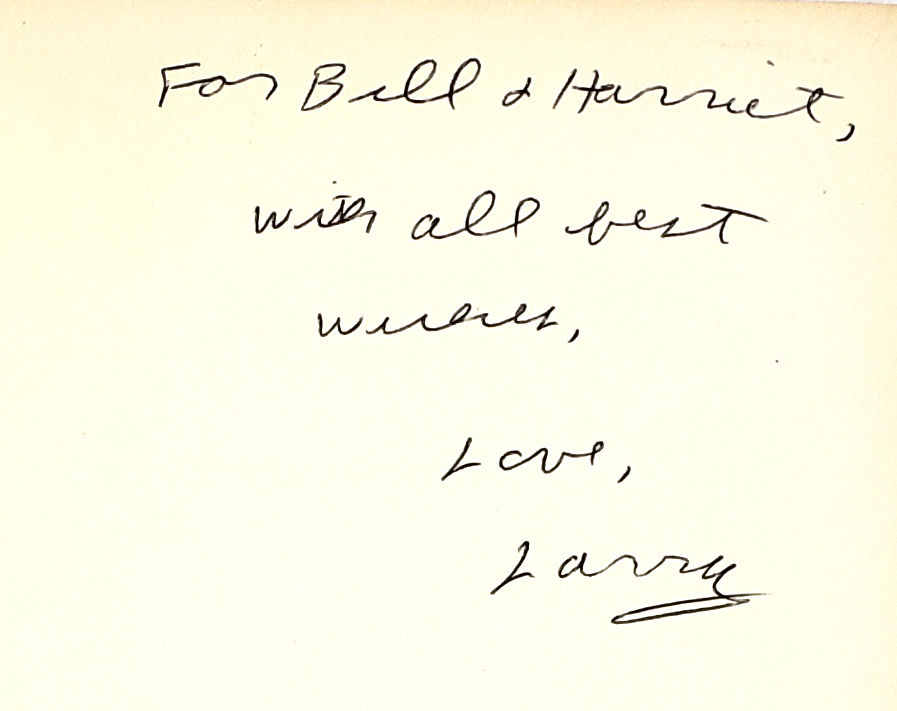 For Bill & Harriet,
with all best
wishes,
Love,
Larry